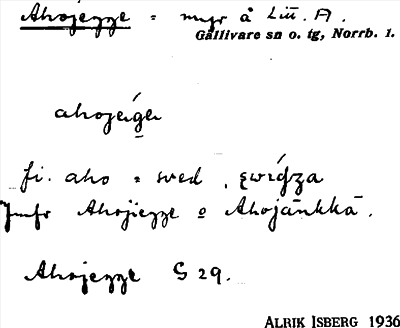 Ahojegge = myr å Litt. A.
Gällivare sn o. tg, Norrb. l.
ahojeigei
fi. aho = sved,
Jmfr Ahojiegge o Ahojänkkä.
Ahojegge S 29.
ALRIK ISBERG 1936